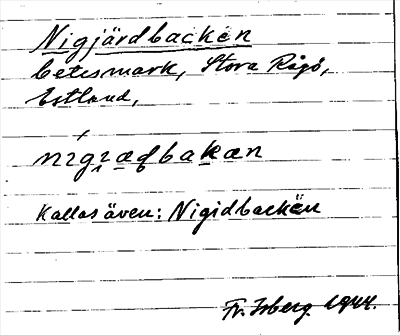 Nigjärdbackën
betesmark, Stora Rågö,
Estland,
nıgıæɖbakæn
Kallas även: Nigidbackën
Fr. Isberg 1944.